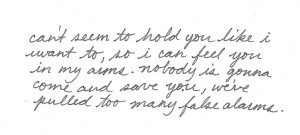 can't seem to hold you like i
want to, so i can feel you
in my arms. nobody is gonna
come and save you, we've
pulled too many false alarms.